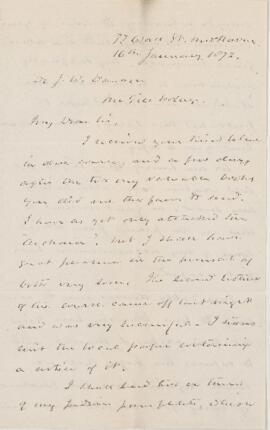 Wall St. New Haven
16th January 1872.
J. W. Dawson
McGill College
My Dear Sir,
I received your kind letter
in due course, and a few days
after the two very valuable books
you did me the favor to send.
I have as yet only attacked the
"Archaia", but I shall have
great pleasure in the perusal of
both very soon. The second lecture
of the course came off last night
and was very successful. I have
sent the local paper containing
a notice of it.
I shall send in
of my Indian pamphlets, which